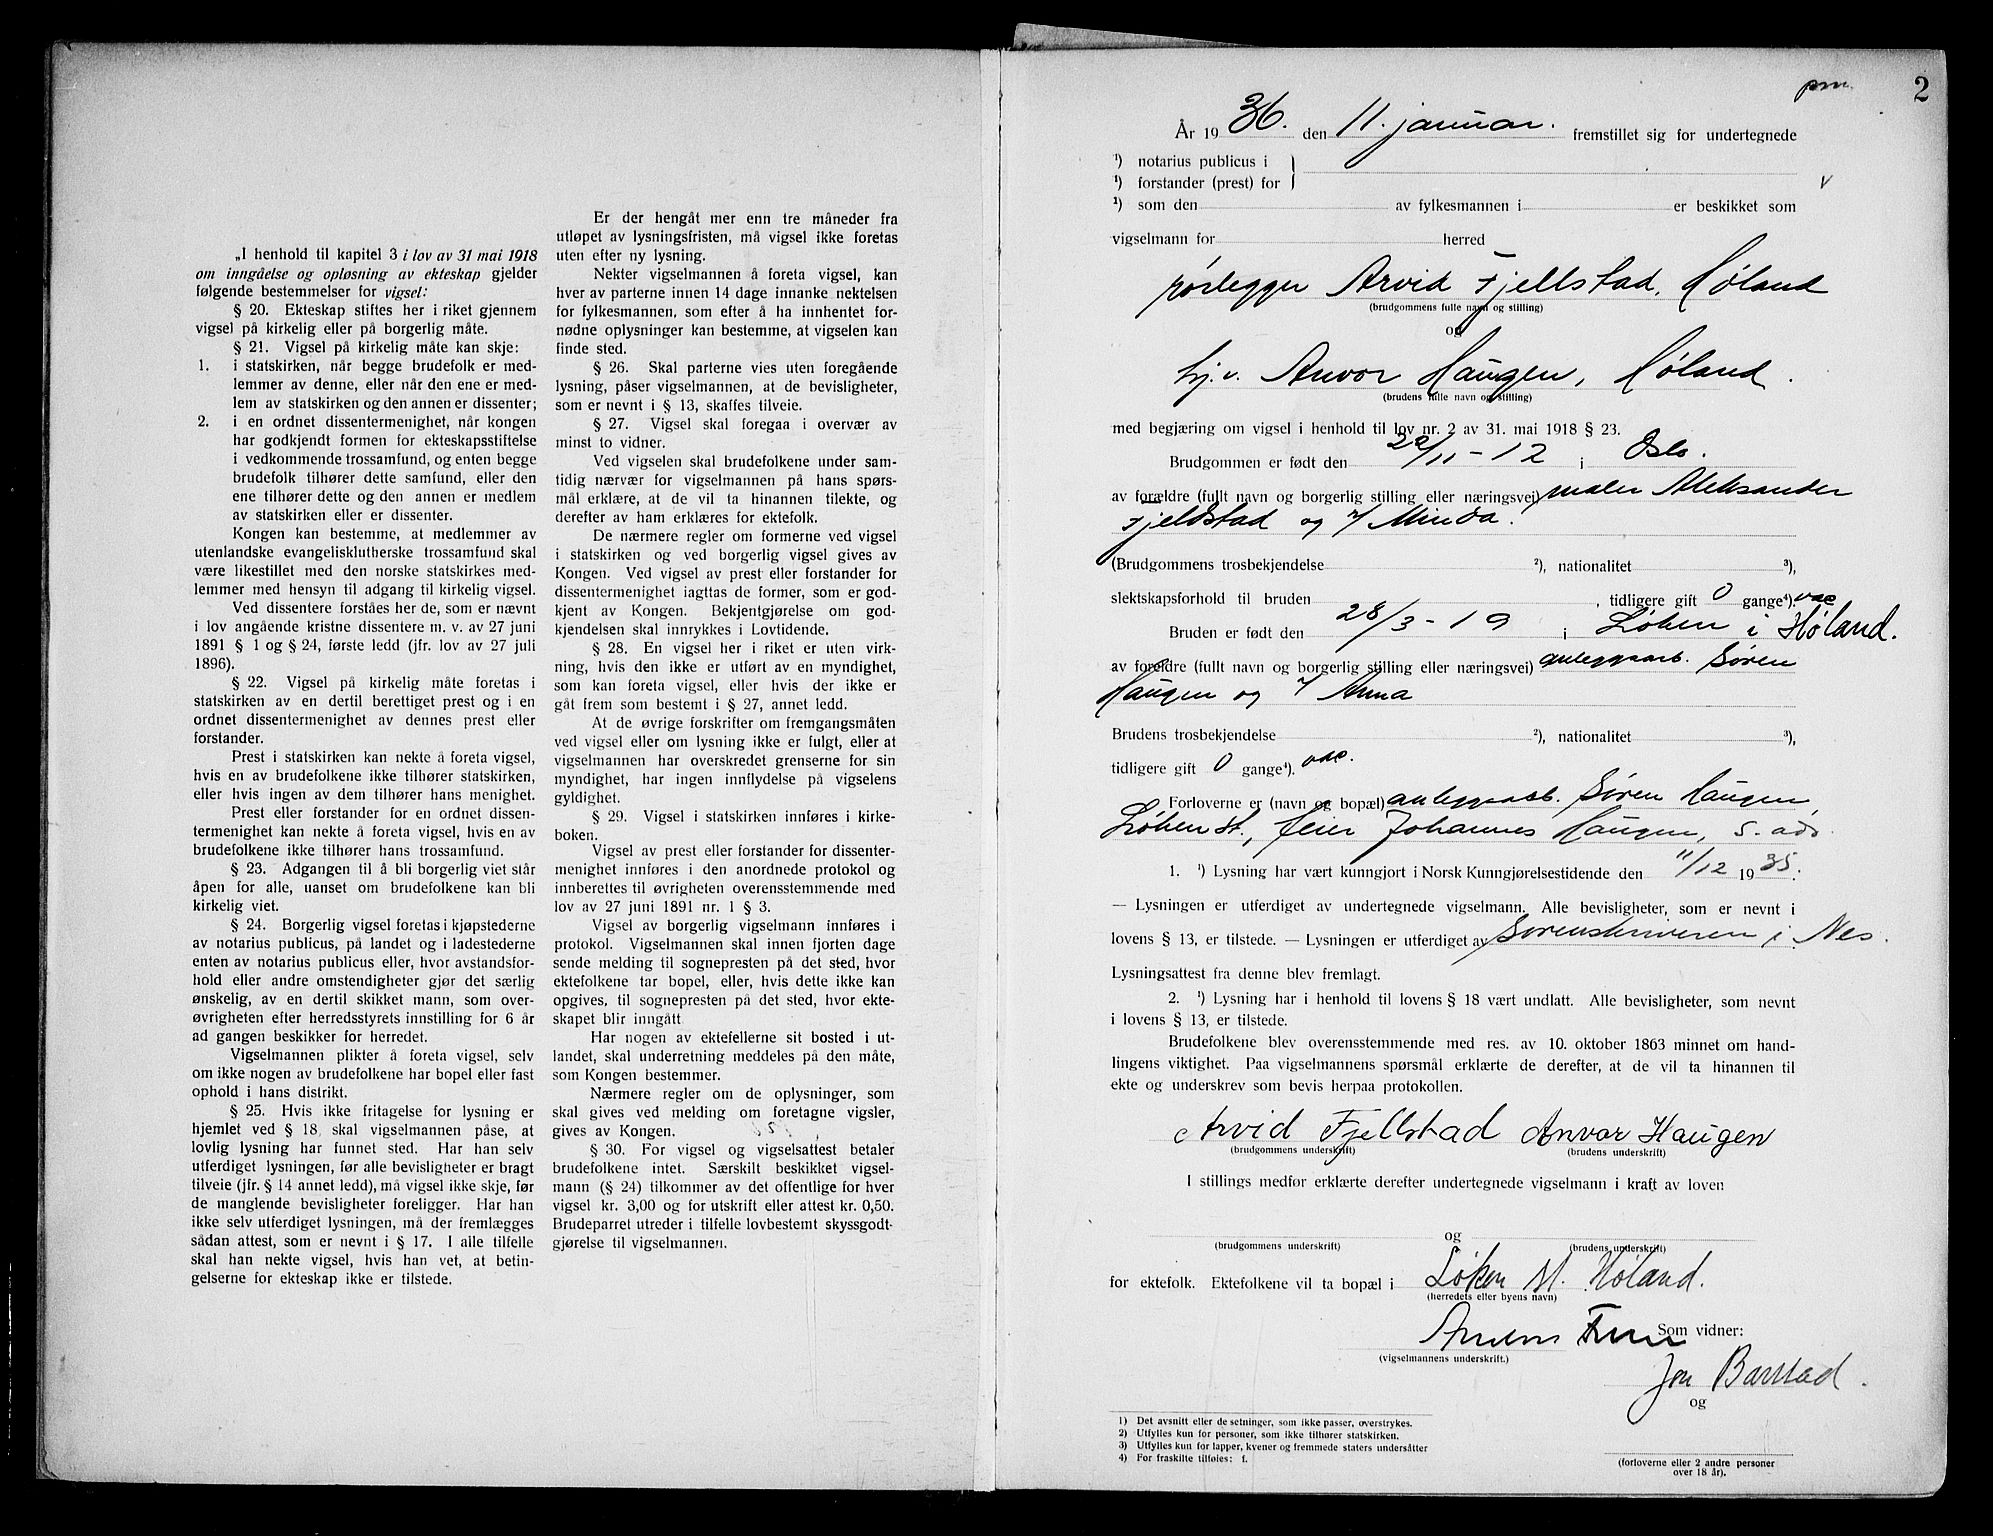 „I henhold til kapitel 3 i lov av 31 mai 1918
om inngåelse og opløsning av ekteskap gjelder
følgende bestemmelser for vigsel:
§ 20. Ekteskap stiftes her i riket gjennem
vigsel på kirkelig eller på borgerlig måte.
§ 21. Vigsel på kirkelig måte kan skje:
1. i statskirken, når begge brudefolk er med-
lemmer av denne, eller når den ene er med-
lem av statskirken og den annen er dissenter;
2. i en ordnet dissentermenighet, når kongen
har godkjendt formen for ekteskapsstiftelse
i vedkommende trossamfund, og enten begge
brudefolk tilhører dette samfund, eller den
ene tilhører dette og den annen er medlem
av statskirken eller er dissenter.
Kongen kan bestemme, at medlemmer av
utenlandske evangelisklutherske trossamfund skal
være likestillet med den norske statskirkes med-
lemmer med hensyn til adgang til kirkelig vigsel.
Ved dissentere forståes her de, som er nævnt
i lov angående kristne dissentere m. v. av 27 juni
1891 § 1 og § 24, første ledd (jfr. lov av 27 juli
1896).
§ 22. Vigsel på kirkelig måte foretas i
statskirken av en dertil berettiget prest og i en
ordnet dissentermenighet av dennes prest eller
forstander.
Prest i statskirken kan nekte å foreta vigsel,
hvis en av brudefolkene ikke tilhører statskirken,
eller hvis ingen av dem tilhører hans menighet.
Prest eller forstander for en ordnet dissen-
termenighet kan nekte å foreta vigsel, hvis en av
brudefolkene ikke tilhører hans trossamfund.
§ 23. Adgangen til å bli borgerlig viet står
åpen for alle, uanset om brudefolkene kan bli
kirkelig viet.
§ 24. Borgerlig vigsel foretas i kjøpstederne
av notarius publicus, på landet og i ladestederne
enten av notarius publicus eller, hvor avstandsfor-
hold eller andre omstendigheter gjør det særlig
ønskelig, av en dertil skikket mann, som over-
øvrigheten efter herredsstyrets innstilling for 6 år
ad gangen beskikker for herredet.
Vigselmannen plikter å foreta vigsel, selv
om ikke nogen av brudefolkene har bopel eller fast
ophold i hans distrikt.
§ 25. Hvis ikke fritagelse for lysning er
hjemlet ved § 18, skal vigselmannen påse, at
lovlig lysning har funnet sted. Har han selv
utferdiget lysningen, før alle bevisligheter er bragt
tilveie (jfr. § 14 annet ledd), må vigsel ikke skje, før
de manglende bevisligheter foreligger. Har han
ikke selv utferdiget lysningen, må der fremlægges
sådan attest, som er nevnt i § 17. I alle tilfelle
skal han nekte vigsel, hvis han vet, at betin-
gelserne for ekteskap ikke er tilstede.
Er der hengåt mer enn tre måneder fra
utløpet av lysningsfristen, må vigsel ikke foretas
uten efter ny lysning.
Nekter vigselmannen å foreta vigsel, kan
hver av parterne innen 14 dage innanke nektelsen
for fylkesmannen, som efter å ha innhentet for-
nødne oplysninger kan bestemme, at vigselen kan
finde sted.
§ 26. Skal parterne vies uten foregående
lysning, påser vigselmannen, at de bevisligheter,
som er nevnt i § 13, skaffes tilveie.
§ 27. Vigsel skal foregaa i overvær av
minst to vidner.
Ved vigselen skal brudefolkene under sam-
tidig nærvær for vigselmannen på hans spørs-
mål erklære, at de vil ta hinannen tilekte, og
derefter av ham erklæres for ektefolk.
De nærmere regler om formerne ved vigsel
i statskirken og ved borgerlig vigsel gives av
Kongen. Ved vigsel av prest eller forstander for
dissentermenighet iagttas de former, som er god-
kjent av Kongen. Bekjentgjørelse om god-
kjendelsen skal innrykkes i Lovtidende.
§ 28. En vigsel her i riket er uten virk-
ning, hvis den ikke er utført av en myndighet,
som kan foreta vigsel, eller hvis der ikke er
gåt frem som bestemt i § 27, annet ledd.
At de øvrige forskrifter om fremgangsmåten
ved vigsel eller om lysning ikke er fulgt, eller at
vigselmannen har overskredet grenserne for sin
myndighet, har ingen innflydelse på vigselens
gyldighet.
§ 29. Vigsel i statskirken innføres i kirke-
boken.
Vigsel av prest eller forstander for dissenter-
menighet innføres i den anordnede protokol og
innberettes til øvrigheten overensstemmende med
lov av 27 juni 1891 nr. 1 § 3.
Vigsel av borgerlig vigselmann innføres i
protokol. Vigselmannen skal innen fjorten dage
sende melding til sognepresten på det sted, hvor
ektefolkene tar bopel, eller, hvis dette ikke kan
opgives, til sognepresten på det sted, hvor ekte-
skapet blir inngått
Har nogen av ektefellerne sit bosted i ut-
landet, skal underretning meddeles på den måte,
som Kongen bestemmer.
Nærmere regler om de oplysninger, som
skal gives ved melding om foretagne vigsler,
gives av Kongen.
§ 30. For vigsel og vigselsattest betaler
brudefolkene intet. Særskilt beskikket vigsel-
mann (§ 24) tilkommer av det offentlige for hver
vigsel kr. 3,00 og for utskrift eller attest kr. 0,50.
Brudeparret utreder i tilfelle lovbestemt skyssgodt-
gjørelse til vigselmannen.
pm. 2
År 1936. den 11. januar. fremstillet sig for undertegnede
¹) notarius publicus i
¹) forstander (prest) for
¹) som den av fylkesmannen i er beskikket som
vigselmann for herred
rørlegger Arvid Fjellstad, Høland
(brudgommens fulle navn og stilling)
og
hj.v. Anvor Haugen, Høland.
(brudens fulle navn og stilling)
med begjæring om vigsel i henhold til lov nr. 2 av 31. mai 1918 § 23.
Brudgommen er født den 22/11-12 i Oslo.
av forældre (fullt navn og borgerlig stilling eller næringsvei) maler Aleksander
Fjeldstad og h/ Minda.
(Brudgommens trosbekjendelse ²), nationalitet ³),
slektskapsforhold til bruden , tidligere gift 0 gange⁴). vac
Bruden er født den 28/3-19 i Løken i Høland.
av foreldre (fullt navn og borgerlig stilling eller næringsvei) anleggsarb. Søren
Haugen og h/ Anna
Brudens trosbekjendelse ²), nationalitet ³),
tidligere gift 0 gange⁴). vac.
Forloverne er (navn og bopæl) anleggsarb. Søren Haugen,
Løken st., feier Johannes Haugen, s. ads.
1. ¹) Lysning har vært kunngjort i Norsk Kunngjørelsestidende den 11/12 1935.
— Lysningen er utferdiget av undertegnede vigselmann. Alle bevisligheter, som er nevnt i
lovens § 13, er tilstede. — Lysningen er utferdiget av Sorenskriveren i Nes.
Lysningsattest fra denne blev fremlagt.
2. ¹) Lysning har i henhold til lovens § 18 vært undlatt. Alle bevisligheter, som nevnt
i lovens § 13, er tilstede.
Brudefolkene blev overensstemmende med res. av 10. oktober 1863 minnet om hand-
lingens viktighet. Paa vigselmannens spørsmål erklærte de derefter, at de vil ta hinannen til
ekte og underskrev som bevis herpaa protokollen.
Arvid Fjellstad Anvor Haugen
(brudgommens underskrift) (brudens underskrift)
I stillings medfør erklærte derefter undertegnede vigselmann i kraft av loven
og
(brudgommens underskrift) (brudens underskrift)
for ektefolk. Ektefolkene vil ta bopæl i Løken st. Høland.
(herredets eller byens navn)
Som vidner:
(vigselmannens underskrift.)
Jon Barstad.
og
1) Det avsnitt eller de setninger, som ikke passer, overstrykes.
2) Utfylles kun for personer, som ikke tilhører statskirken.
3) Utfylles kun for lapper, kvener og fremmede staters undersåtter
4) For fraskilte tilføies: f.
(forloverne eller 2 andre personer
over 18 år).